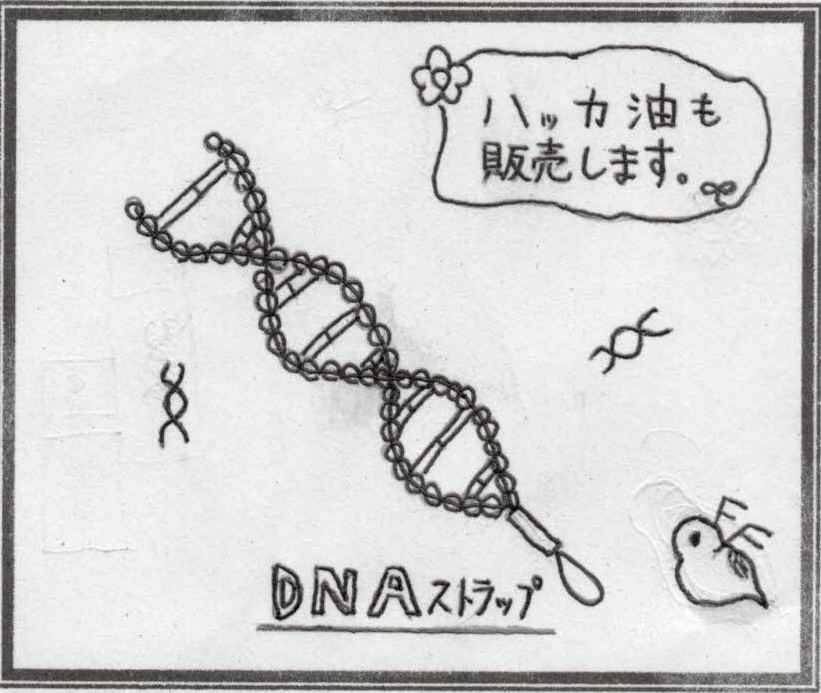 ハッカ油も
販売します。
DNAストラップ